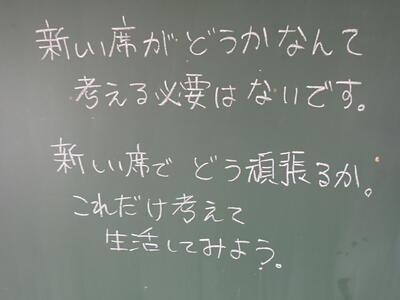 新しい席がどうかなんて
考える必要はないです。
新しい席でどう頑張るか。
これだけ考えて
生活してみよう。